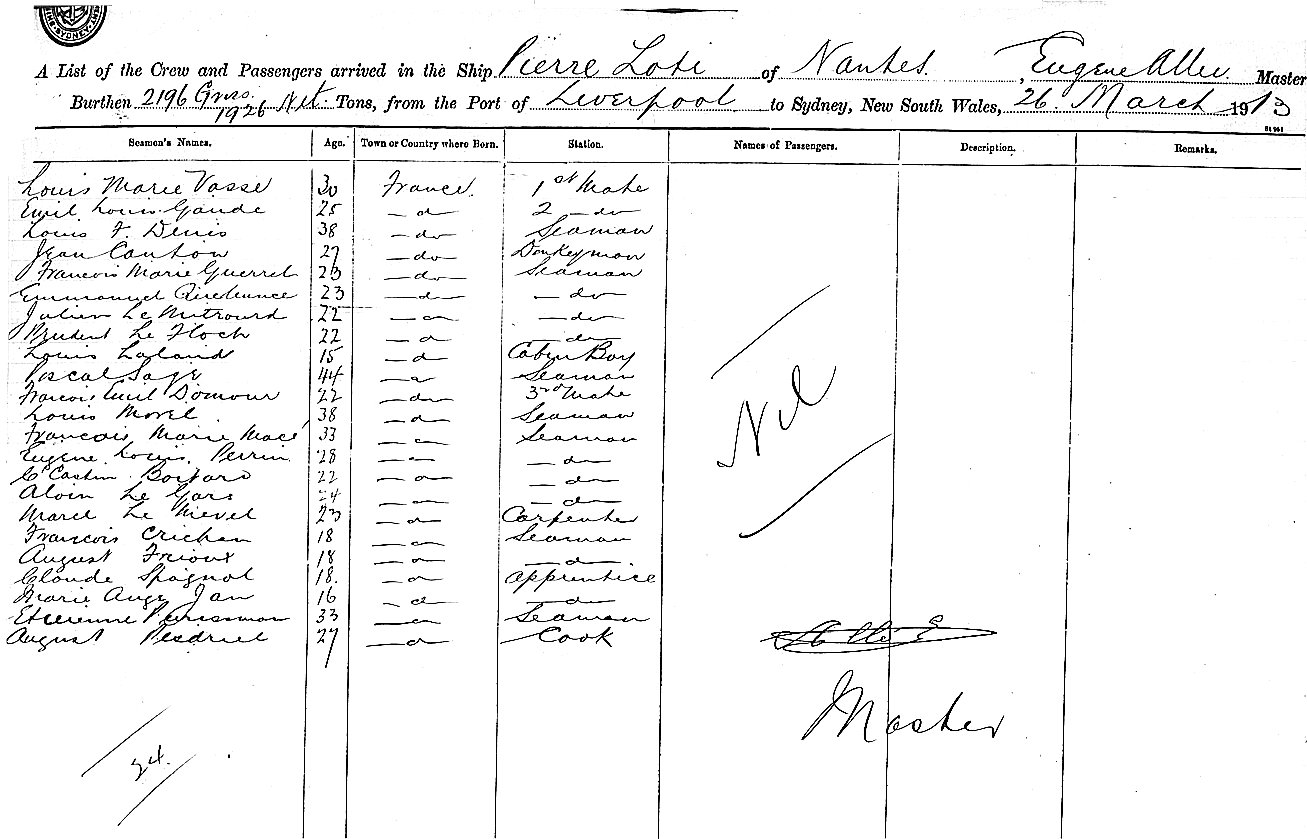 SYDNEY
A List of the Crew and Passengers arrived in the Ship Pierre Loti of Nantes, Eugene Allee Master
Burthen 2196 Gross 1926 Net Tons, from the Port of Liverpool to Sydney, New South Wales, 26 March 1913
Seamen's Names. Age. Town or Country where Born. Station. Names of Passengers. Description. Remarks.
Louis Marie Vasse 30 France 1st Mate
Emil Louis Gaude 25 — do 2 — do
Louis F. Denis 38 — do Seaman
Jean Canton 27 — do Donkeyman
Francois Marie Guerret 23 — do Seaman
Emmanuel 23 — do — do
Julien Le 22 — do — do
Prudent Le Floch 22 — do — do
Louis Laland 15 — do Cabin Boy
Pascal Sage 44 — do Seaman
Francois Emil Domour 22 — do 3rd Mate
Louis Morel 38 — do Seaman
Francois Marie Macé 33 — do Seaman
Eugene Louis Perrin 28 — do — do
Boitard 22 — do — do
Le Gars 24 — do — do
Marcel Le Mevel 23 — do Carpenter
Francois Crichan 18 — do Seaman
August Frioux 18 — do — do
Claude Spagnol 18. — do Apprentice
Marie Ange Jan 16 — do — do
Etienne 33 — do Seaman
August 27 — do Cook
Nil
Master
24.